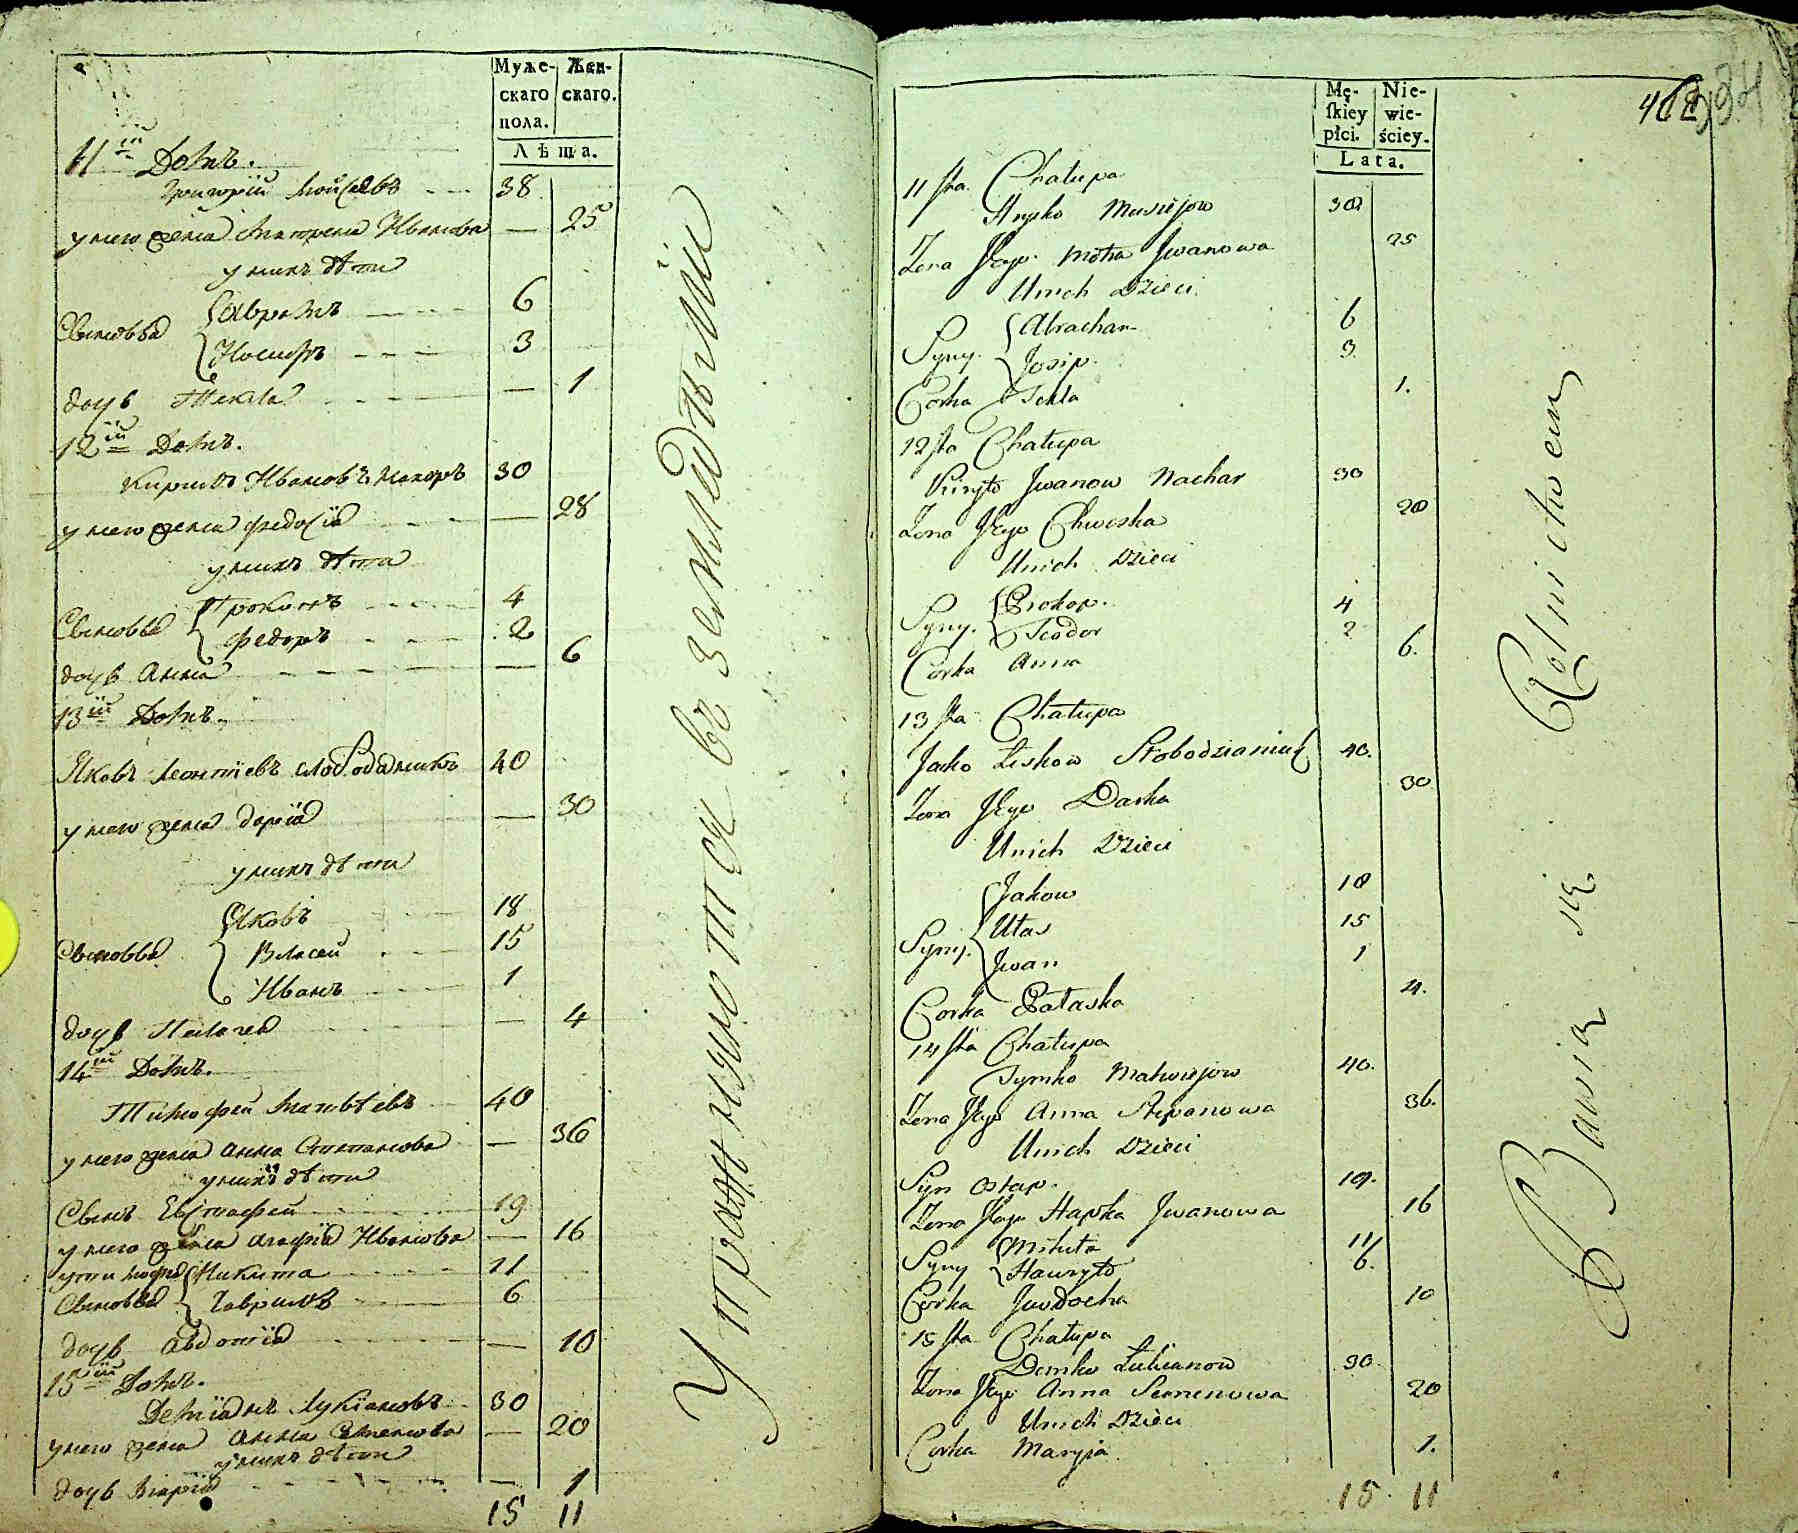 Муже-
скаго
пола.
Жен-
скаго.
Лѣта.
11й Домъ.
Григорій Мойсеевъ 38
у него жена Матрена Иванова — 25
у нихъ дѣти
Сыновья Абрамъ 6
Иосифъ 3
дочь Текла — 1
12й Домъ.
Кирило Ивановъ Нахоръ 30
у него жена Федосія — 28
у нихъ дѣти
Сыновья Прокопъ 4
Федоръ 2
дочь Анна — 6
13й Домъ.
Яковъ Леонтіевъ Слободяникъ 40
у него жена Дарія — 30
у нихъ дѣти
Яковъ 18
Сыновья Власей 15
Иванъ 1
дочь Палагея — 4
14й Домъ.
Тимофей Матвѣевъ 40
у него жена Анна Степанова — 36
у нихъ дѣти
Сынъ Евстафей 19
у него жена Агафія Иванова — 16
Никита 11
Сыновья Гаврило 6
дочь Авдотія — 10
15й Домъ.
Деміянъ Лукіановъ 30
у него жена Анна Семенова — 20
у нихъ дѣти
дочь Марія — 1
15 11
Упражняются въ земледѣліи
Mę-
skiey
płci.
Nie-
wie-
ściey.
Lata.
11sta Chałupa
Hryśko Musiejow 38
Żona Jego Motra Jwanowa 25
Unich Dzieci
Syny Abracham 6
Josip 3
Corka Tekla 1.
12sta Chałupa
Kiryło Jwanow Nachar 30
Żona Jego Chweska 28
Unich Dzieci
Syny Prokop 4
Teodor 2
Corka Anna 6.
13sta Chałupa
Jacko Leskow Słobodzianiuk 40.
Żona Jego Darka 30
Unich Dzieci
Jakow 18
Syny Ułas 15
Jwan 1
Corka Pałaska 4.
14sta Chałupa
Tymko Matwiejow 40.
Żona Jego Anna Stepanowa 36.
Unich Dzieci
Syn Ostap 19.
Żona Jego Hapka Jwanowa 16
Syny Mikita 11
Hawryło 6.
Corka Jwdocha 10
15sta Chałupa
Demko Łukianow 30
Żona Jego Anna Semenowa 20
Unich Dzieci
Corka Maryja 1.
15 11
Bawią się Rolnictwem